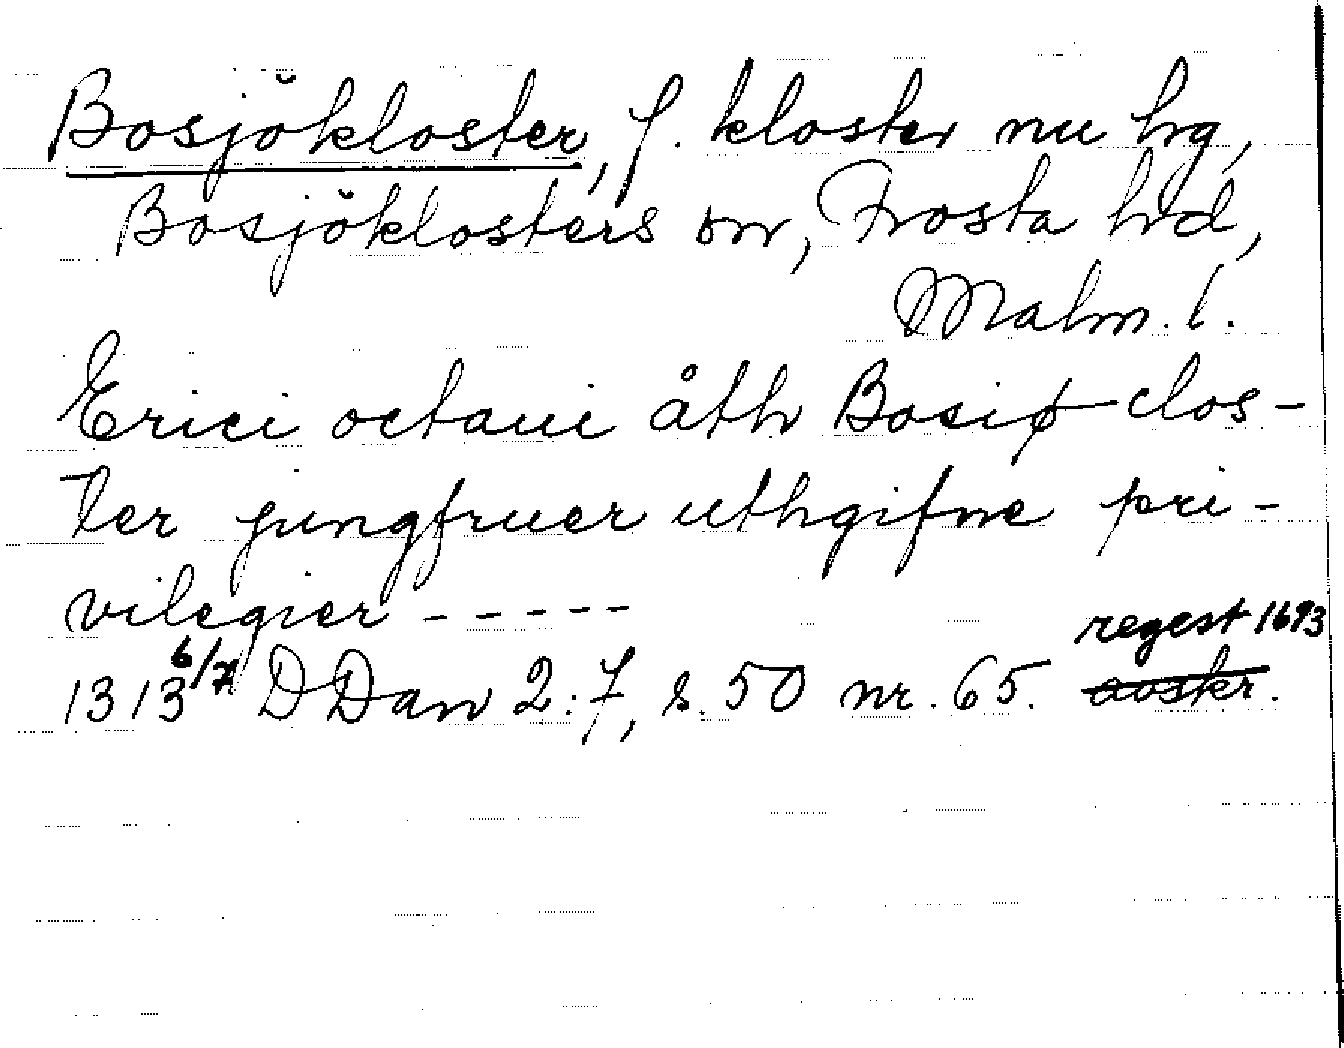 Bosjökloster, f. kloster nu hg,
Bosjöklosters sn, Frosta hd,
Malm. l.
Erici octaui åth Bosiø clos-
ter jungfruer uthgifne pri-
vilegier - - - - -
regest 1693
1313 6/7 DDan 2:7, s. 50 nr. 65. avskr.